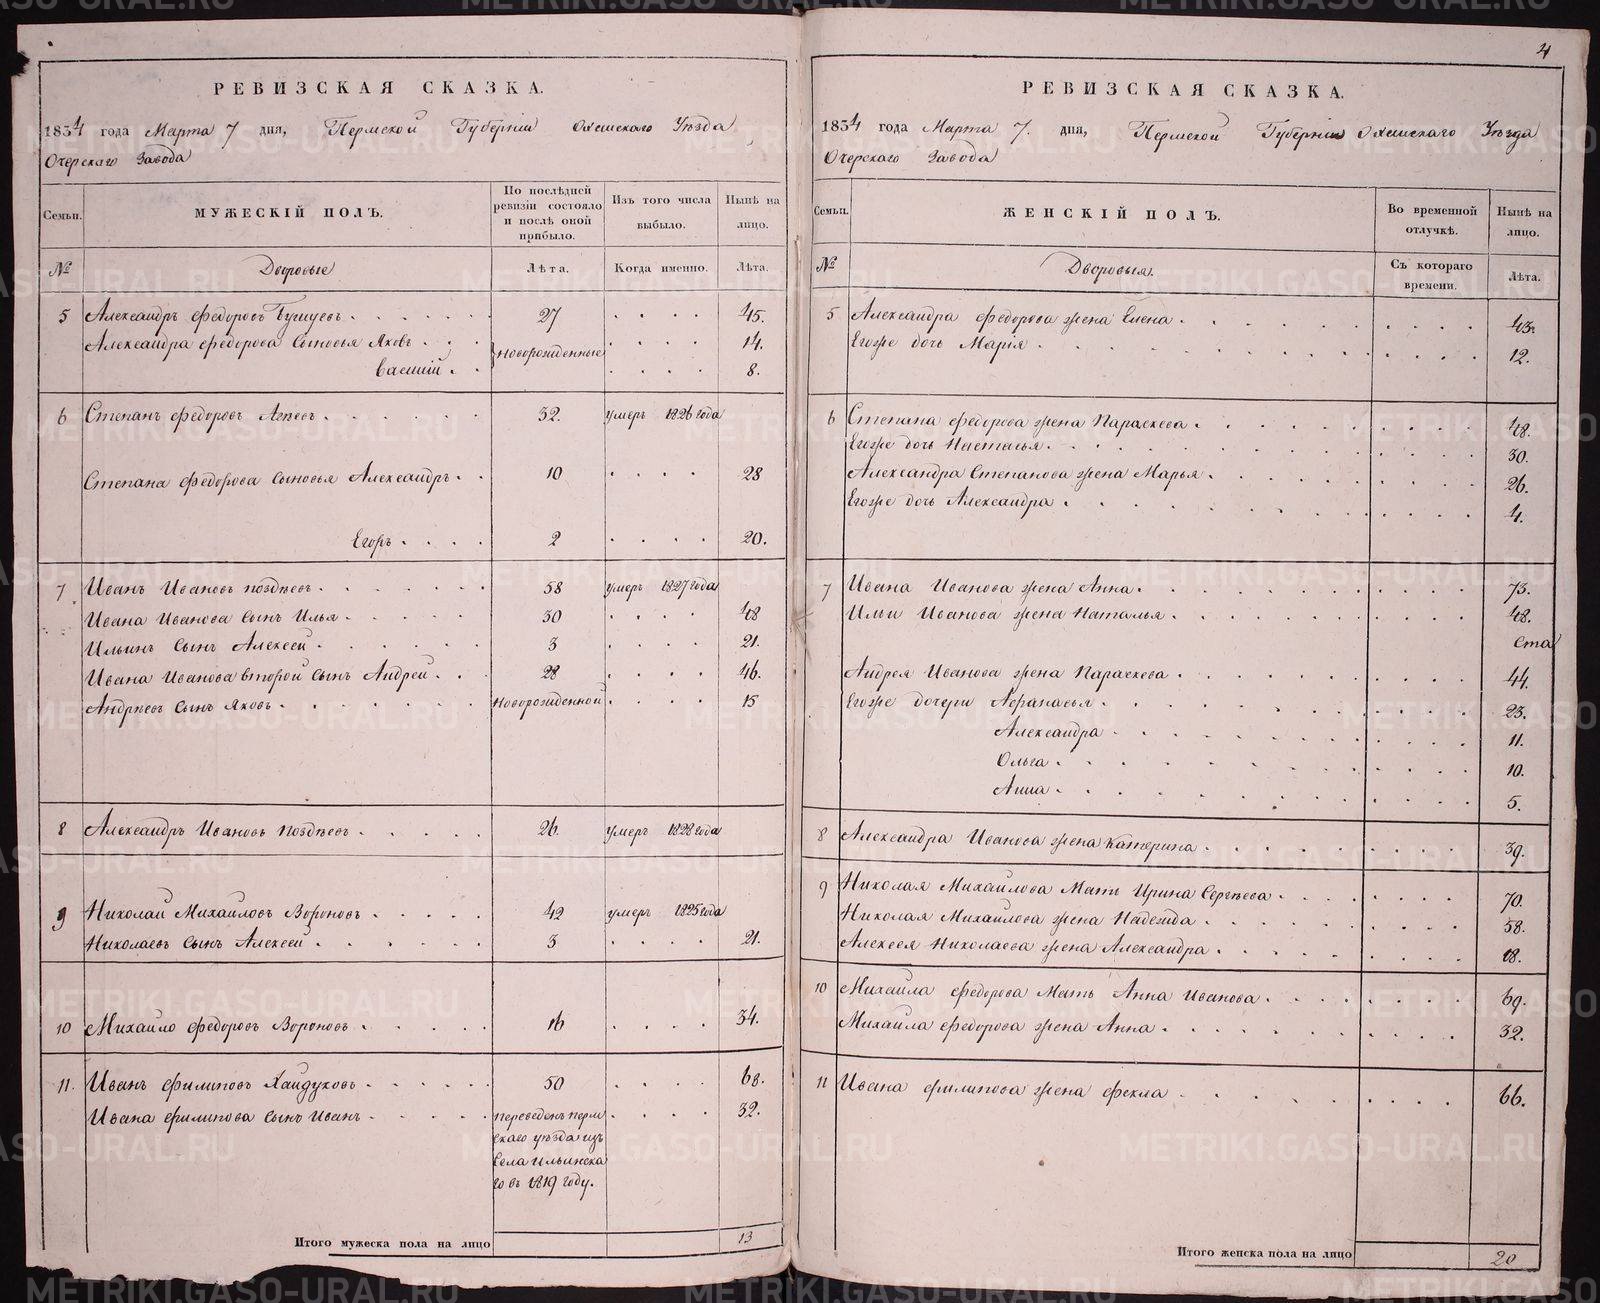 4
РЕВИЗСКАЯ СКАЗКА.
1834 года Марта 7 дня, Пермской Губерніи Оханскаго Уѣзда
Очерскаго Завода
Семьи.
МУЖЕСКІЙ ПОЛЪ.
По послѣдней ревизіи состояло и послѣ оной прибыло.
Изъ того числа выбыло.
Нынѣ на лицо.
№
Дворовые
Лѣта.
Когда именно.
Лѣта.
5 Александръ Федоровъ 27 45.
Александра Федорова Сыновья Яковъ новорожденные 14.
Василій 8.
6 Степанъ Федоровъ 32. умеръ 1826 года
Степана Федорова Сыновья Александръ 10 28
Егоръ 2 20.
7 Иванъ Ивановъ Поздѣевъ 58 умеръ 1827 года
Ивана Иванова Сынъ Илья 30 48
Ильинъ Сынъ Алексей 3 21.
Ивана Иванова второй Сынъ Андрей 28 46.
Андреевъ Сынъ Яковъ Новорожденной 15
8 Александръ Ивановъ Поздѣевъ 26. умеръ 1828 года
9 Николай Михайловъ Вороновъ 42 умеръ 1825 года
Николаевъ Сынъ Алексей 3 21.
10 Михайло Федоровъ Вороновъ 16 34.
11. Иванъ Филиповъ Хайдуковъ 50 68.
Ивана Филипова Сынъ Иванъ переведенъ перм 32.
скаго уѣзда изъ
Села Ильинска
го въ 1819 году.
Итого мужеска пола на лицо 13
РЕВИЗСКАЯ СКАЗКА.
1834 года Марта 7. дня, Пермской Губерніи Оханскаго Уѣзда
Очерскаго Завода
Семьи.
ЖЕНСКІЙ ПОЛЪ.
Во временной отлучкѣ.
Нынѣ на лицо.
№
Дворовыя.
Съ котораго времени.
Лѣта.
5 Александра Федорова жена Елена 43.
Егоже дочь Марія 12.
6 Степана Федорова жена Параскева 48.
Егоже дочь Настасья 30.
Александра Степанова жена Марья 26.
Егоже дочь Александра 4.
7 Ивана Иванова жена Анна 73.
Ильи Иванова жена Наталья 48.
ста
Андрея Иванова жена Параскева 44.
Егоже дочери Афанасья 23.
Александра 11.
Ольга 10.
Анна 5.
8 Александра Иванова жена Катерина 39.
9 Николая Михайлова Мать Ирина Сергѣева 70.
Николая Михайлова жена Надежда 58.
Алексея Николаева жена Александра 18.
10 Михайла Федорова Мать Анна Иванова 69.
Михайла Федорова жена Анна 32.
11 Ивана Филипова жена Фекла 66.
Итого женска пола на лицо 20
METRIKI.GASO-URAL.RU